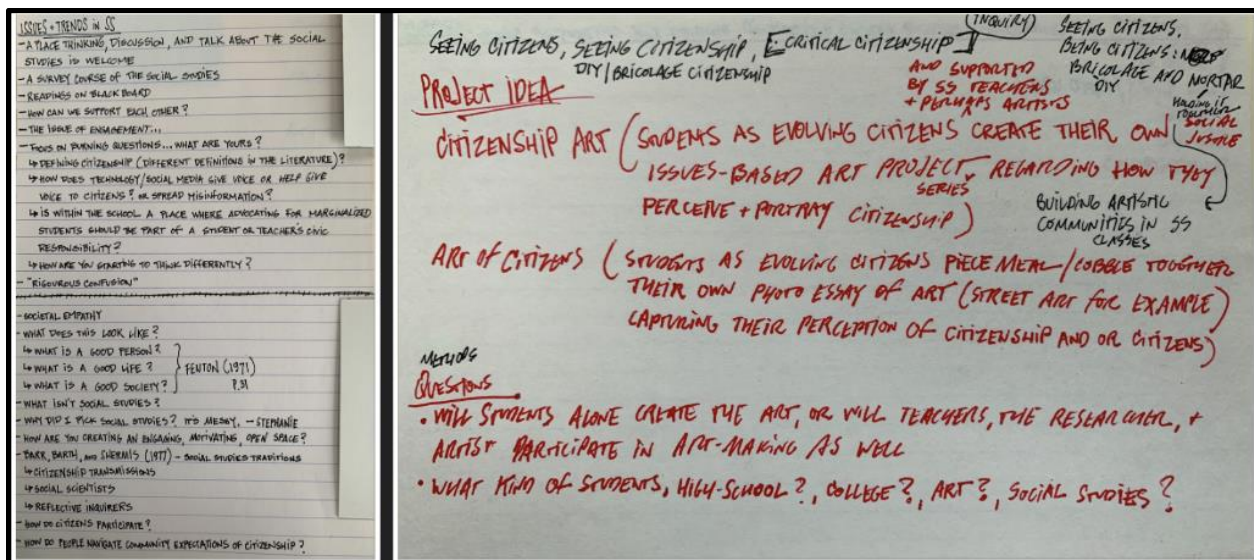 ISSUES + TRENDS in SS
- A PLACE THINKING, DISCUSSION, AND TALK ABOUT THE SOCIAL
STUDIES IS WELCOME
- A SURVEY COURSE OF THE SOCIAL STUDIES
- READINGS ON BLACK BOARD
- HOW CAN WE SUPPORT EACH OTHER?
- THE ISSUE OF ENGAGEMENT...
- FOCUS ON BURNING QUESTIONS... WHAT ARE YOURS?
↳ DEFINING CITIZENSHIP (DIFFERENT DEFINITIONS IN THE LITERATURE)?
↳ HOW DOES TECHNOLOGY/SOCIAL MEDIA GIVE VOICE OR HELP GIVE
VOICE TO CITIZENS? OR SPREAD MISINFORMATION?
↳ IS WITHIN THE SCHOOL A PLACE WHERE ADVOCATING FOR MARGINALIZED
STUDENTS SHOULD BE PART OF A STUDENT OR TEACHER'S CIVIC
RESPONSIBILITY?
↳ HOW ARE YOU STARTING TO THINK DIFFERENTLY?
- "RIGOUROUS CONFUSION"
- SOCIETAL EMPATHY
- WHAT DOES THIS LOOK LIKE?
↳ WHAT IS A GOOD PERSON?
↳ WHAT IS A GOOD LIFE? } FENTON (1971)
↳ WHAT IS A GOOD SOCIETY? P.31
- WHAT ISN'T SOCIAL STUDIES?
- WHY DID I PICK SOCIAL STUDIES? IT'S MESSY. - STEPHANIE
- HOW ARE YOU CREATING AN ENGAGING, MOTIVATING, OPEN SPACE?
- BARR, BARTH, AND SHERMIS (1977) - SOCIAL STUDIES TRADITIONS
↳ CITIZENSHIP TRANSMISSIONS
↳ SOCIAL SCIENTISTS
↳ REFLECTIVE INQUIRERS
- HOW DO CITIZENS PARTICIPATE?
- HOW DO PEOPLE NAVIGATE COMMUNITY EXPECTATIONS OF CITIZENSHIP?
(INQUIRY)
SEEING CITIZENS, SEEING CITIZENSHIP, [CRITICAL CITIZENSHIP]
DIY/BRICOLAGE CITIZENSHIP
SEEING CITIZENS,
BEING CITIZENS:
BRICOLAGE AND MORTAR
DIY
HOLDING IT
TOGETHER
SOCIAL
JUSTICE
AND SUPPORTED
BY SS TEACHERS
+ PERHAPS ARTISTS
PROJECT IDEA
CITIZENSHIP ART (STUDENTS AS EVOLVING CITIZENS CREATE THEIR OWN
ISSUES-BASED ART PROJECT REGARDING HOW THEY
SERIES
PERCEIVE + PORTRAY CITIZENSHIP)
BUILDING ARTISTIC
COMMUNITIES IN SS
CLASSES
ART OF CITIZENS (STUDENTS AS EVOLVING CITIZENS PIECE MEAL/COBBLE TOGETHER
THEIR OWN PHOTO ESSAY OF ART (STREET ART FOR EXAMPLE)
CAPTURING THEIR PERCEPTION OF CITIZENSHIP AND OR CITIZENS)
METHODS
QUESTIONS
• WILL STUDENTS ALONE CREATE THE ART, OR WILL TEACHERS, THE RESEARCHER, +
ARTIST PARTICIPATE IN ART-MAKING AS WELL
• WHAT KIND OF STUDENTS, HIGH-SCHOOL?, COLLEGE?, ART?, SOCIAL STUDIES?